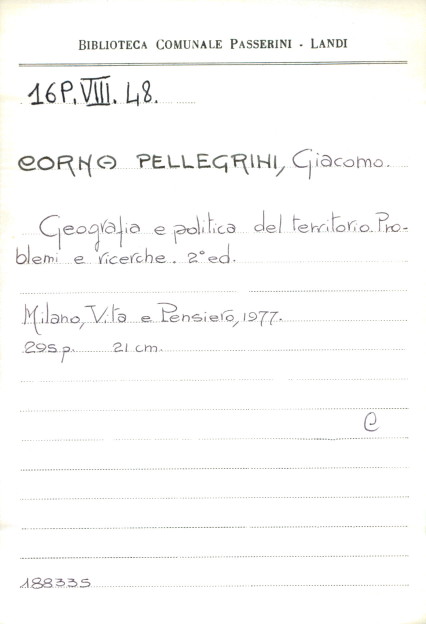 BIBLIOTECA COMUNALE PASSERINI - LANDI
16P.VIII.48.
CORNA PELLEGRINI, Giacomo.
Geografia e politica del territorio. Pro-
blemi e ricerche. 2° ed.
Milano, Vita e Pensiero, 1977.
295 p. 21 cm.
C
188335